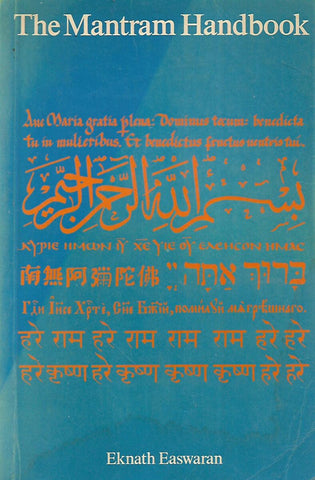 The Mantram Handbook
Aue Maria gratia plena: Dominus tecum: benedicta
tu in mulieribus. Et benedictus fructus uentris tui.
بسم الله الرحمن الرحيم
ΚΥΡΙΕ ΗΜΩΝ ΙΥ ΧΕ ΥΙΕ ΘΥ ΕΛΕΗCΟΝ ΗΜΑC
南無阿彌陀佛 ברוך אתה יי
Гди Іисе Хрте, Сне Бжій, помилуй мя грѣшнаго.
हरे राम हरे राम राम राम हरे हरे
हरे कृष्ण हरे कृष्ण कृष्ण कृष्ण हरे हरे
Eknath Easwaran